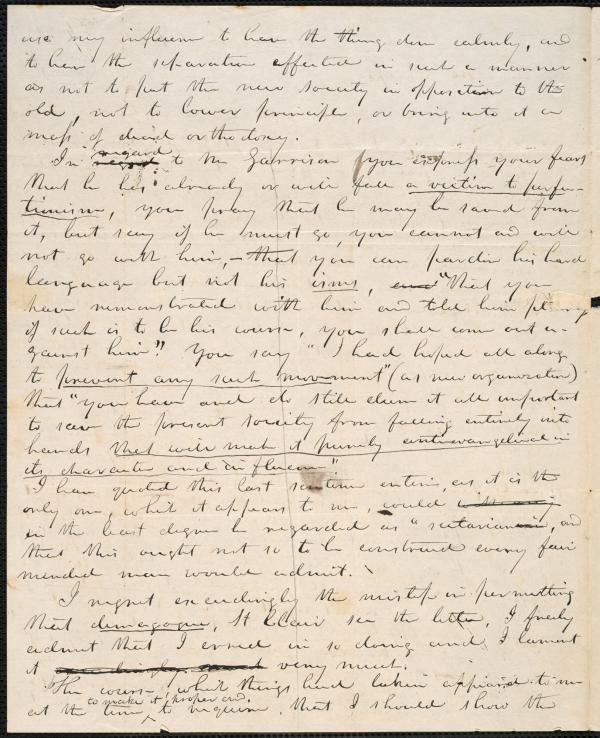 use my influence to have the thing done calmly, and
to have the separation effected in such a manner
as not to put the new society in opposition to the
old, not to lower principle, or bring into it a
mass of dead orthodoxy.
In regard to Mr Garrison you express your fears
that he has already or will fall a victim to perfec-
tionism, you pray that he may be saved from
it, but say if he must go, you cannot and will
not go with him,– that you can pardon his hard
language but not his isms, and "that you
have remonstrated with him and told him plainly
if such is to be his course, you shall come out a-
gainst him". You say "I had hoped all along
to prevent any such movement" (as new organization)
that "you have and do still deem it all important
to save the present society from falling entirely into
hands that will make it purely anti-evangelical in
its character and influence"
I have quoted this last sentence entire, as it is the
only one, what it appears to me, could
in the least degree be regarded as "sectarian", and
that this ought not so to be construed every fair
minded man would admit.
I regret exceedingly the misstep in permitting
that demagogue, St Clair see the letter, I freely
admit that I erred in so doing and I lament
it exceedingly very much.
The course, what things had taken appeared to me
to make it proper and
at the time to require, that I should show the